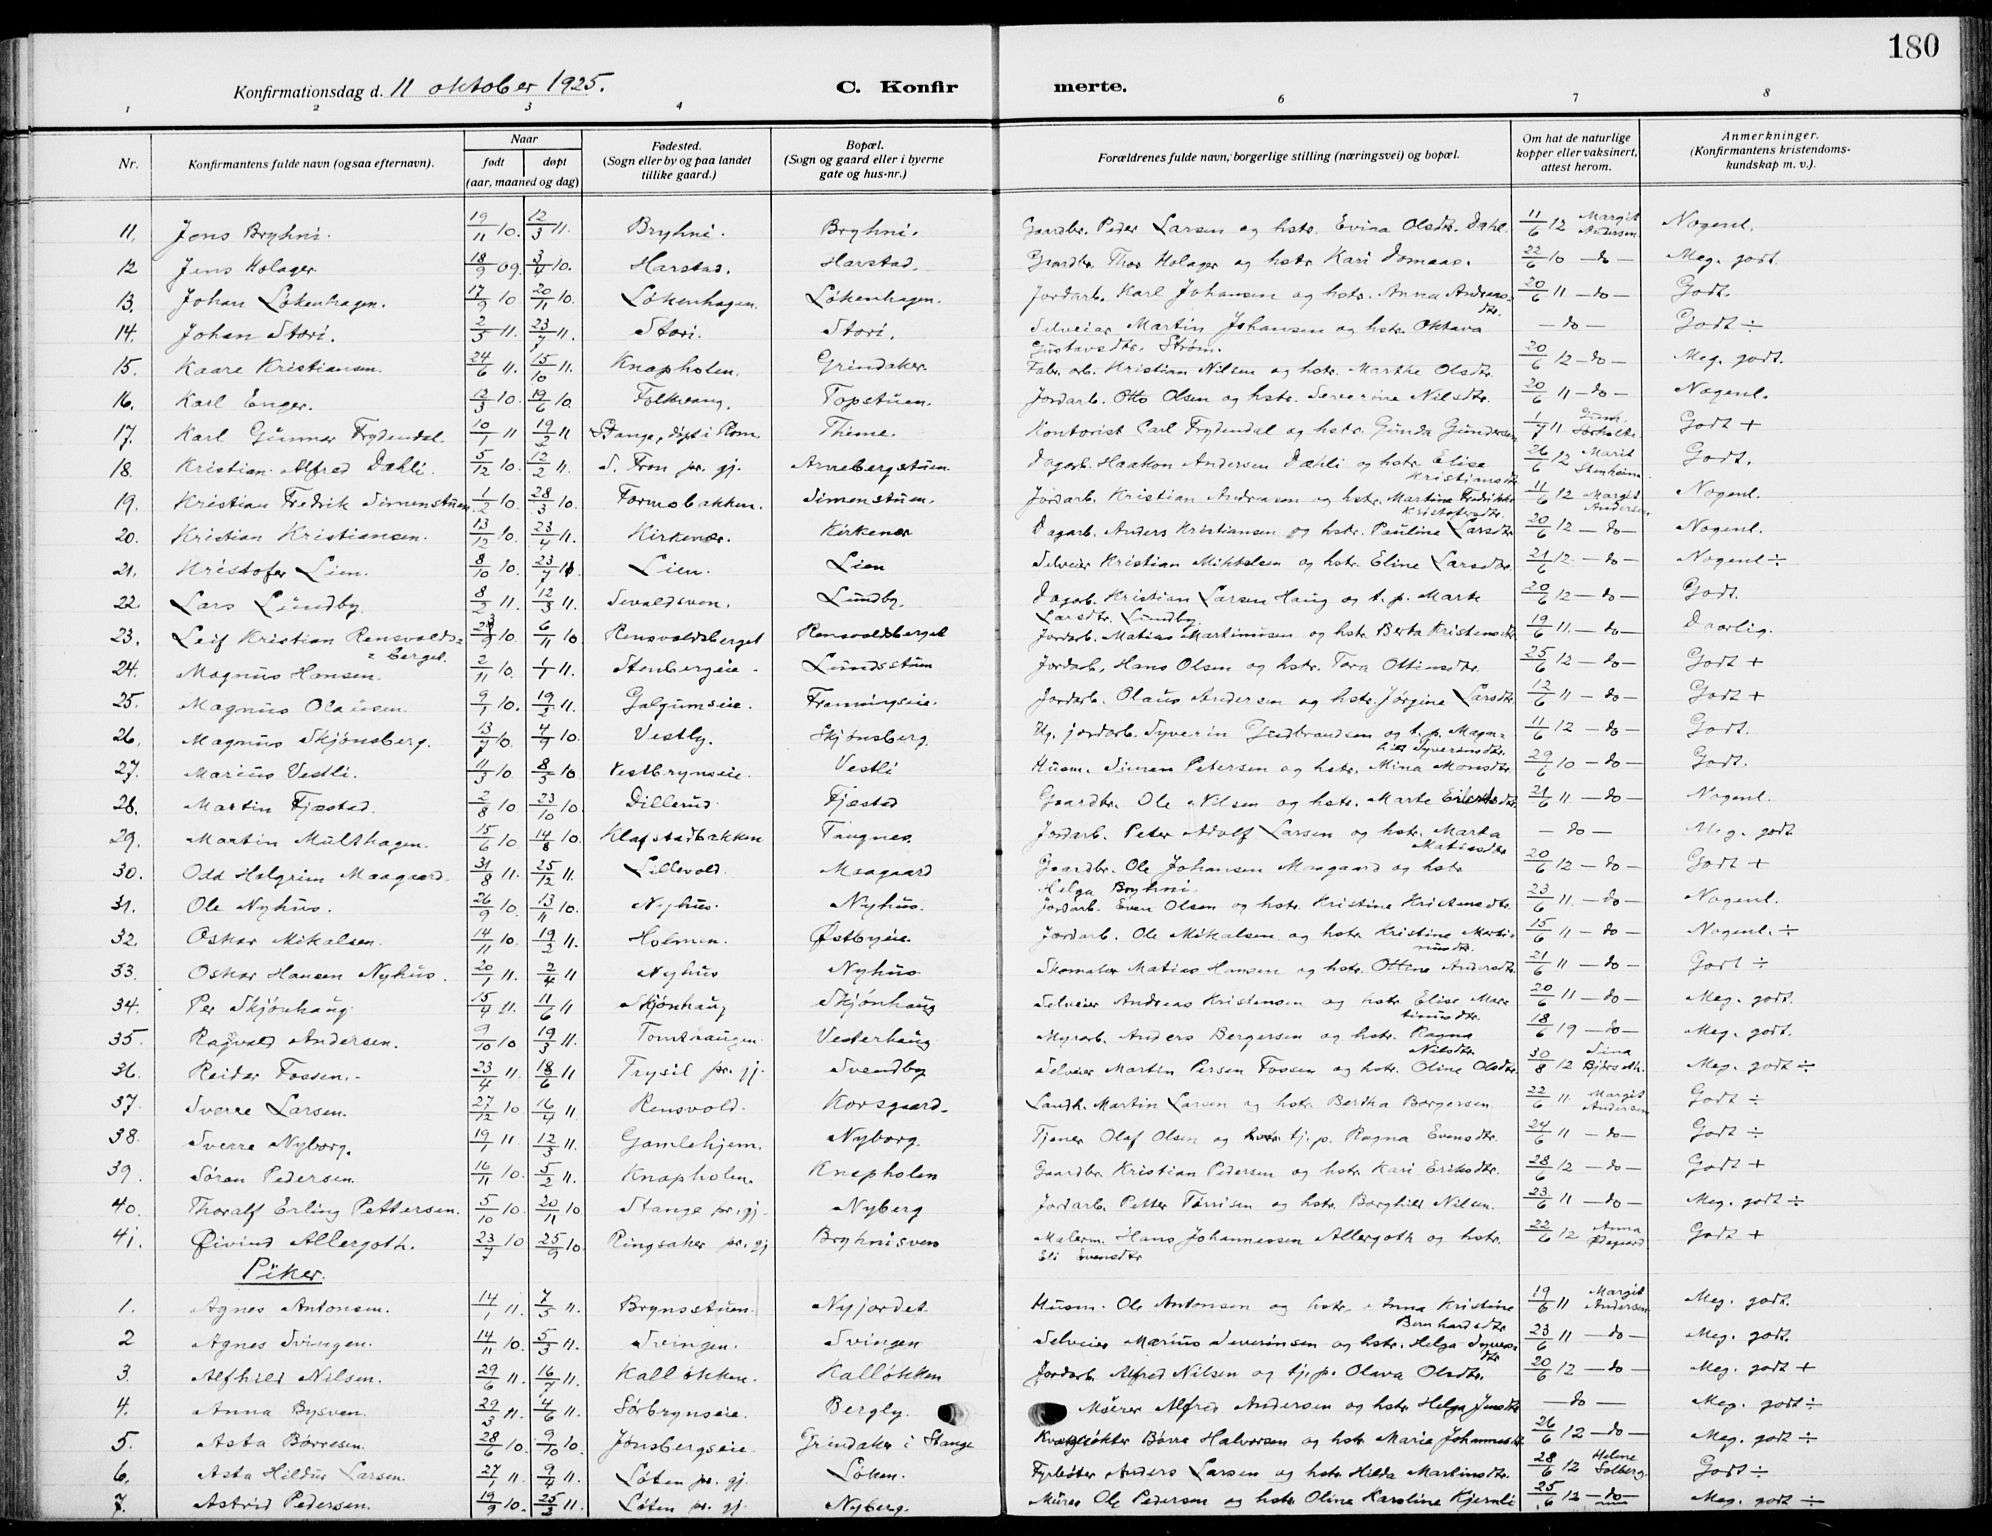 180
Konfirmationsdag d. 11 oktober 1925.
C. Konfirmerte.
1 2 3 4 6 7 8
Nr. Konfirmantens fulde navn (ogsaa efternavn). Naar født døpt (aar, maaned og dag) Fødested. (Sogn eller by og paa landet tillike gaard.) Bopæl. (Sogn og gaard eller i byerne gate og hus-nr.) Forældrenes fulde navn, borgerlige stilling (næringsvei) og bopæl. Om hat de naturlige kopper eller vaksinert, attest herom. Anmerkninger. (Konfirmantens kristendomskundskap m. v.).
11. Jens Bryhni. 19/11 10. 12/3 11. Bryhni. Bryhni. Gaardbr. Peder Larsen og hstr. Evina Olsdtr. Dahl. 11/6 12 Margit Andersen Nogenl.
12 Jens Holager 18/9 09. 3/4 10. Harstad. Harstad. Gaardbr. Thor Holager og hstr. Kari Domaas. 22/6 10 – do – Meg. godt.
13. Johan Løkenhagen. 17/9 10. 20/11 10. Løkenhagen. Løkenhagen. Jordarb. Karl Johansen og hstr. Anna Andreasdtr. 20/6 11 – do – Godt.
14. Johan Stori. 2/5 11. 23/7 11. Stori. Stori. Selveier Martin Johansen og hstr. Oktava Gustavsdtr. Strøm. – do – Godt ÷
15. Kaare Kristiansen. 24/6 11. 15/10 11. Knapholen. Grindaker. Fabr. arb. Kristian Nilsen og hstr. Marthe Olsdtr. 20/6 12 – do – Meg. godt.
16. Karl Enger. 12/3 10. 19/6 10. Folkvang. Topstuen. Jordarb. Otto Olsen og hstr. Severine Nilsdtr. 20/6 11 – do – Nogenl.
17. Karl Gunnar Frydendal. 10/1 11 19/2 11 Stange, døpt i Rom. Theme. Kontorist Carl Frydendal og hstr. Gunda Gundersen 1/7 11 Godt +
18. Kristian Alfred Dæhli. 5/12 10. 12/2 11. S. Fron pr. gj. Annebergstuen. Dagarb. Haakon Andersen Dæhli og hstr. Elise Kristiansdtr. 26/6 12 Marit Stenheim Godt.
19. Kristian Fredrik Simenstuen. 1/2 10. 28/3 10. Formobakken. Simenstuen. Jordarb. Kristian Andreasen og hstr. Martina Fredrikke Kristofersdtr. 11/6 12 Margit Andersen. Nogenl.
20. Kristian Kristiansen. 13/12 10. 23/4 11. Kirkenær. Kirkenær Dagarb. Anders Kristiansen og hstr. Pauline Larsdtr. 20/6 12 – do – Nogenl.
21. Kristofer Lien. 8/10 10. 23/7 11. Lien. Lien Selveier Kristian Mikkelsen og hstr. Eline Larsdtr. 21/6 12. – do – Nogenl ÷
22. Lars Lundby. 8/2 11. 12/3 11. Sevaldsven. Lundby. Dagarb. Kristian Larsen Haug og t. p. Marte Larsdtr. Lundby. 20/6 12 – do – Godt.
23. Leif Kristian Rensvoldsberget. 10. 6/11 10 Rensvoldsberget Rensvoldsberget Jordarb. Matias Martinusen og hstr. Berta Kristensdtr. 19/6 11. – do – Daarlig.
24. Magnus Hansen. 2/11 10. 1/1 11. Stenbergeie. Lundsstuen Jordarb. Hans Olsen og hstr. Tora Ottinsdtr. 25/6 12 – do – Godt +
25. Magnus Olausen. 9/1 10. 19/2 11. Galgumseie. Framingseie. Jordarb. Olaus Andersen og hstr. Jørgine Larsdtr. 12/6 11 – do – Godt +
26. Magnus Skjønsberg. 13/7 10. 4/9 10. Vestby. Skjønsberg. Ug. jordarb. Syverin Gudbrandsen og t. p. Magnhild Syversensdtr. 11/6 12 – do – Godt.
27. Marius Vestli. 11/3 10. 8/5 10 Vestbrynseie. Vestli Husm. Simen Petersen og hstr. Mina Monsdtr. 29/6 10 – do – Godt.
28. Martin Fjæstad. 2/8 10 23/10 10. Dillerud. Fjæstad Gaardbr. Ole Nilsen og hstr. Marte Eilertsdtr. 21/6 11. – do – Nogenl.
29. Martin Multhagen. 15/6 10 14/8 10. Klafstadbakken. Taugnes. Jordarb. Peter Adolf Larsen og hstr. Marta Matiasdtr – do – Meg. godt
30. Odd Halgrim Maagaard. 31/8 11. 25/12 11. Lillevold. Maagaard Gaardbr. Ole Johansen Maagaard og hstr. Helga Bryhni. 20/6 12 – do – Godt +
31. Ole Nyhus. 26/9 10. 13/11 10. Nyhus. Nyhus. Jordarb. Even Olsen og hstr. Kristine Kristensdtr. 23/6 11. – do – Nogenl.
32. Oskar Mikalsen. 14/11 10. 19/2 11. Holmen. Østbyeie. Jordarb. Ole Mikalsen og hstr. Kristine Martinusdtr. 15/6 11 – do – Nogenl. ÷
33. Oskar Hansen Nyhus. 20/1 11. 2/4 11 Nyhus Nyhus Skomaker Matias Hansen og hstr. Ottine Andersdtr. 21/6 11 – do – Godt ÷
34. Per Skjønhaug. 15/4 11. 11/6 11 Skjønhaug Skjønhaug Selveier Andreas Kristensen og hstr. Elise Martinusdtr. 20/6 11 – do – Meg. godt.
35. Ragvald Andersen. 9/10 10 19/3 11. Tomthaugen. Vesterhaug Myrarb. Anders Bergersen og hstr. Ragna Nilsdtr. 18/6 19 – do – Meg. godt.
36. Reidar Fossen. 23/4 11. 18/6 11 Trysil pr. gj. Svendby Selveier Martin Persen Fossen og hstr. Oline Olsdtr. 30/8 12 Meg. godt ÷
37. Sverre Larsen. 27/12 10. 16/4 11. Rensvold. Korsgaard. Landh. Martin Larsen og hstr. Bertha Borgersen 22/6 11. Margit Andersen Godt ÷
38. Sverre Nyborg. 19/1 11. 12/3 11. Gamlehjem. Nyborg. Tjener Olaf Olsen og tj. p. Ragna Evensdtr. 24/6 11 – do – Godt ÷
39. Søren Pedersen. 16/11 10. 5/2 11. Knapholen. Knapholen Gaardbr. Kristian Pedersen og hstr. Kari Eriksdtr. 28/6 12 – do – Godt +
40. Thoralf Erling Pettersen. 5/10 10. 20/11 10 Stange pr. gj. Nyberg Jordarb. Petter Torrisen og hstr. Borghild Nilsen. 23/6 11 – do – Meg. godt ÷
41. Øivind Allergoth. 23/7 10 25/9 10 Ringsaker pr. gj. Bryhnisven Malerm. Hans Johannessen Allergoth og hstr. Eli Evensdtr 22/6 12 Anna Ødegaard Godt +
Piker.
1. Agnes Antonsen. 14/1 11. 7/5 11. Brynsstuen. Nyjordet Husm. Ole Antonsen og hstr. Anna Kristine Bernhardsdtr 19/6 11 Margit Andersen Meg. godt.
2 Agnes Svingen. 14/11 10. 5/3 11. Svingen. Svingen Selveier Marius Severinsen og hstr. Helga Syversdtr 23/6 11 – do – Meg. godt.
3. Alfhild Nilsen. 29/6 11. 16/7 11. Kalløkken. Kalløkken Jordarb. Alfred Nilsen og tj. p. Olava Olsdtr. 20/6 12 – do – Meg. godt +
4. Anna Bysven. 29/3 11. 4/6 11. Sørbrynseie. Bergly. Murer Alfred Andersen og hstr. Helga Jensdtr – do – Meg. godt ÷
5. Asta Børresen. 28/6 10. 9/10 10. Jønsbergseie. Grindaker i Stange Kvægrøkter Børre Halvorsen og hstr. Marie Johannesdtr 26/6 12 – do – Meg. godt ÷
6. Asta Hildur Larsen. 27/1 11. 9/4 11. Løten pr. gj. Løken. Fyrbøter Anders Larsen og hstr. Hilda Martinsdtr. 28/6 12 Helene Solberg. Godt ÷
7. Astrid Pedersen. 19/9 10. 25/3 11. Løten pr. gj. Nyberg. Murer Ole Pedersen og hstr. Oline Karoline Kjernli 25/6 12 – do – Meg. godt ÷